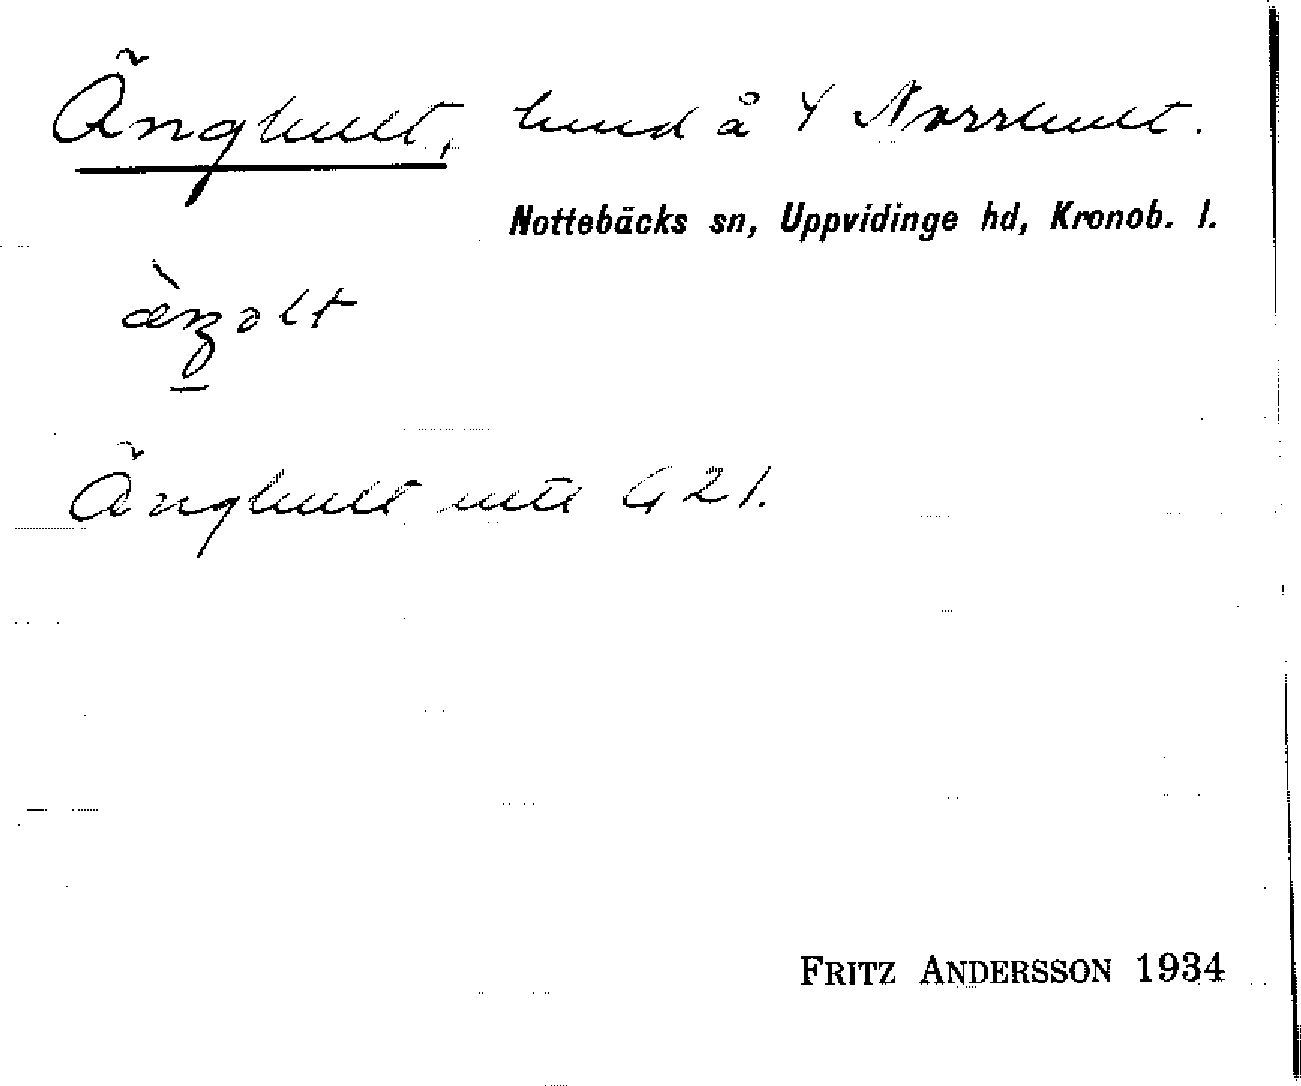 Änghult, lund å 4 Norrhult.
Nottebäcks sn, Uppvidinge hd, Kronob. l.
Änghult 421.
FRITZ ANDERSSON 1934